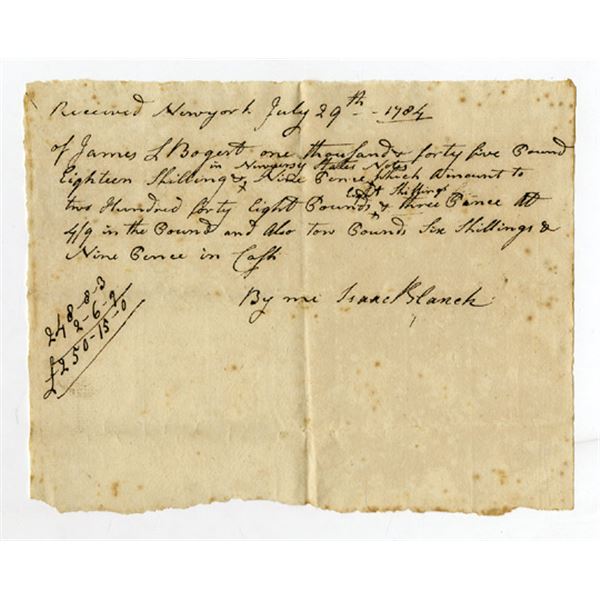 Received Newyork July 29th - 1784
of James L Bogert one thousand & forty five Pound
in Newjersy States Notes
Eighteen Shilling & Nine Pence which Amount to
Eight Shillings
two Hundred forty Eight Pounds & three Pence At
4/9 in the Pound and Also tow Pounds Six Shillings &
Nine Pence in Cash
By me Isaac Blanch
248-8-3
2-6-9
£250-15-0